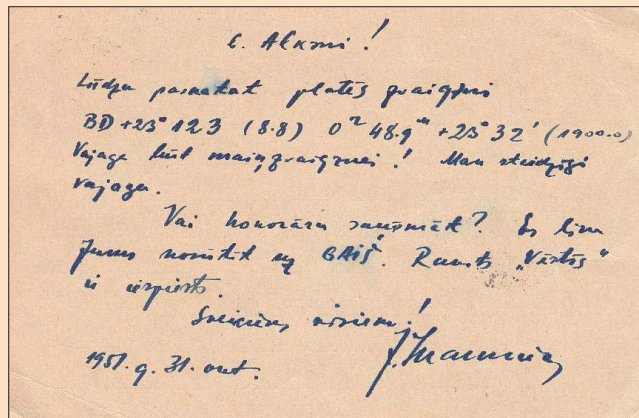 c. Alksni!
Lūdzu paskatāt platēs zvaigzni
BD +23° 123 (8.8) 0ʰ 48.9ᵐ +23° 32' (1900.0)
Vajaga būt maiņzvaigznei! Man steidzīgi
vajaga.
Vai honorāru saņēmāt? Es liku
Jums nosūtīt uz GAIŠ. Raksts „Vēstīs"
ir iespiests.
Sveicieni visiem!
1951. g. 31. okt.